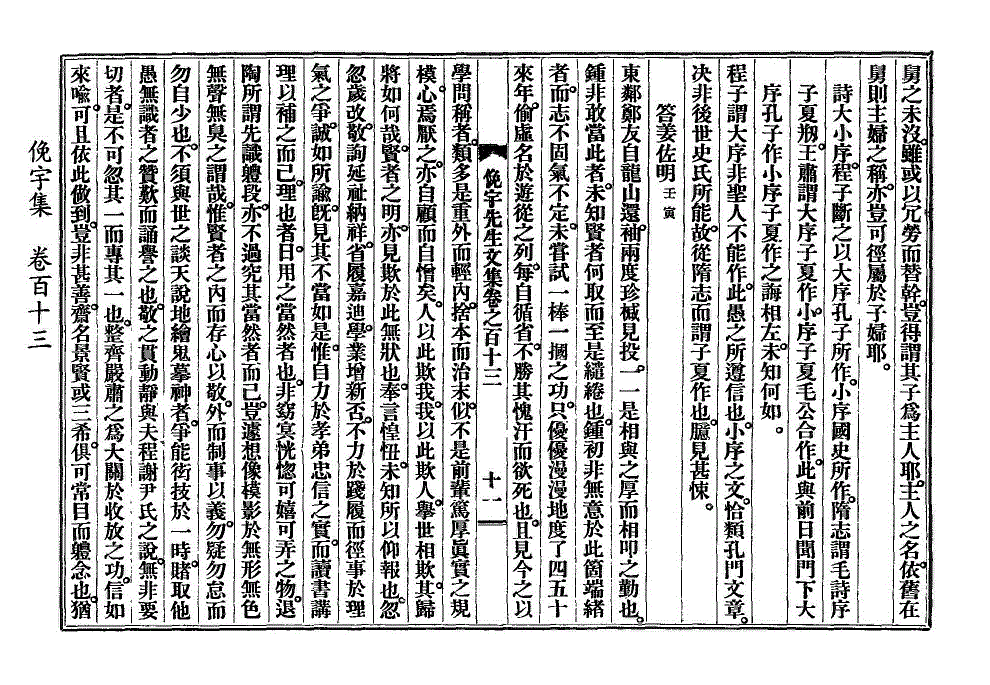 舅之未沒。雖或以冗勞而替幹。豈得謂其子爲主人耶。主人之名。依舊在
舅。則主婦之稱。亦豈可徑屬於子婦耶。
詩大小序。程子斷之以大序孔子所作。小序國史所作。隋志謂毛詩序
子夏刱。王肅謂大序子夏作。小序子夏毛公合作。此與前日聞門下大
序孔子作小序子夏作之誨相左。未知何如。
程子謂大序非聖人不能作。此愚之所遵信也。小序之文。恰類孔門文章。
决非後世史氏所能。故從隋志而謂子夏作也。臆見甚悚。
答姜佐明 壬寅
東鄰鄭友自龍山還。袖兩度珍椷見投。一一是相與之厚而相叩之勤也。
鍾非敢當此者。未知賢者何取而至是繾綣也。鍾初非無意於此箇端緖
者。而志不固氣不定。未嘗試一棒一摑之功。只優優漫漫地度了四五十
來年。偷虛名於遊從之列。每自循省。不勝其愧汗而欲死也。且見今之以
俛宇先生文集卷之百十三 十一
學問稱者。類多是重外而輕內。捨本而治末。似不是前輩篤厚眞實之規
模。心焉厭之。亦自顧而自憎矣。人以此欺我。我以此欺人。擧世相欺。其歸
將如何哉。賢者之明。亦見欺於此無狀也。奉言惶忸。未知所以仰報也。忽
忽歲改。敬詢延祉納祥。省履嘉迪。學業增新否。不力於踐履而徑事於理
氣之爭。誠如所諭。旣見其不當如是。惟自力於孝弟忠信之實。而讀書講
理以補之而已。理也者。日用之當然者也。非窈冥恍惚可嬉可弄之物。退
陶所謂先識軆段。亦不過究其當然者而已。豈遽想像模影於無形無色
無聲無臭之謂哉。惟賢者之內而存心以敬。外而制事以義。勿疑勿怠而
勿自少也。不須與世之談天說地繪鬼摹神者。爭能衒技於一時。賭取他
愚無識者之贊歎而誦譽之也。敬之貫動靜與夫程謝尹氏之說。無非要
切者。是不可忽其一而專其一也。整齊嚴肅之爲大關於收放之功。信如
來喩。可且依此做到。豈非甚善。齋名景賢或三希。俱可常目而軆念也。猶
俛宇集 卷百十三